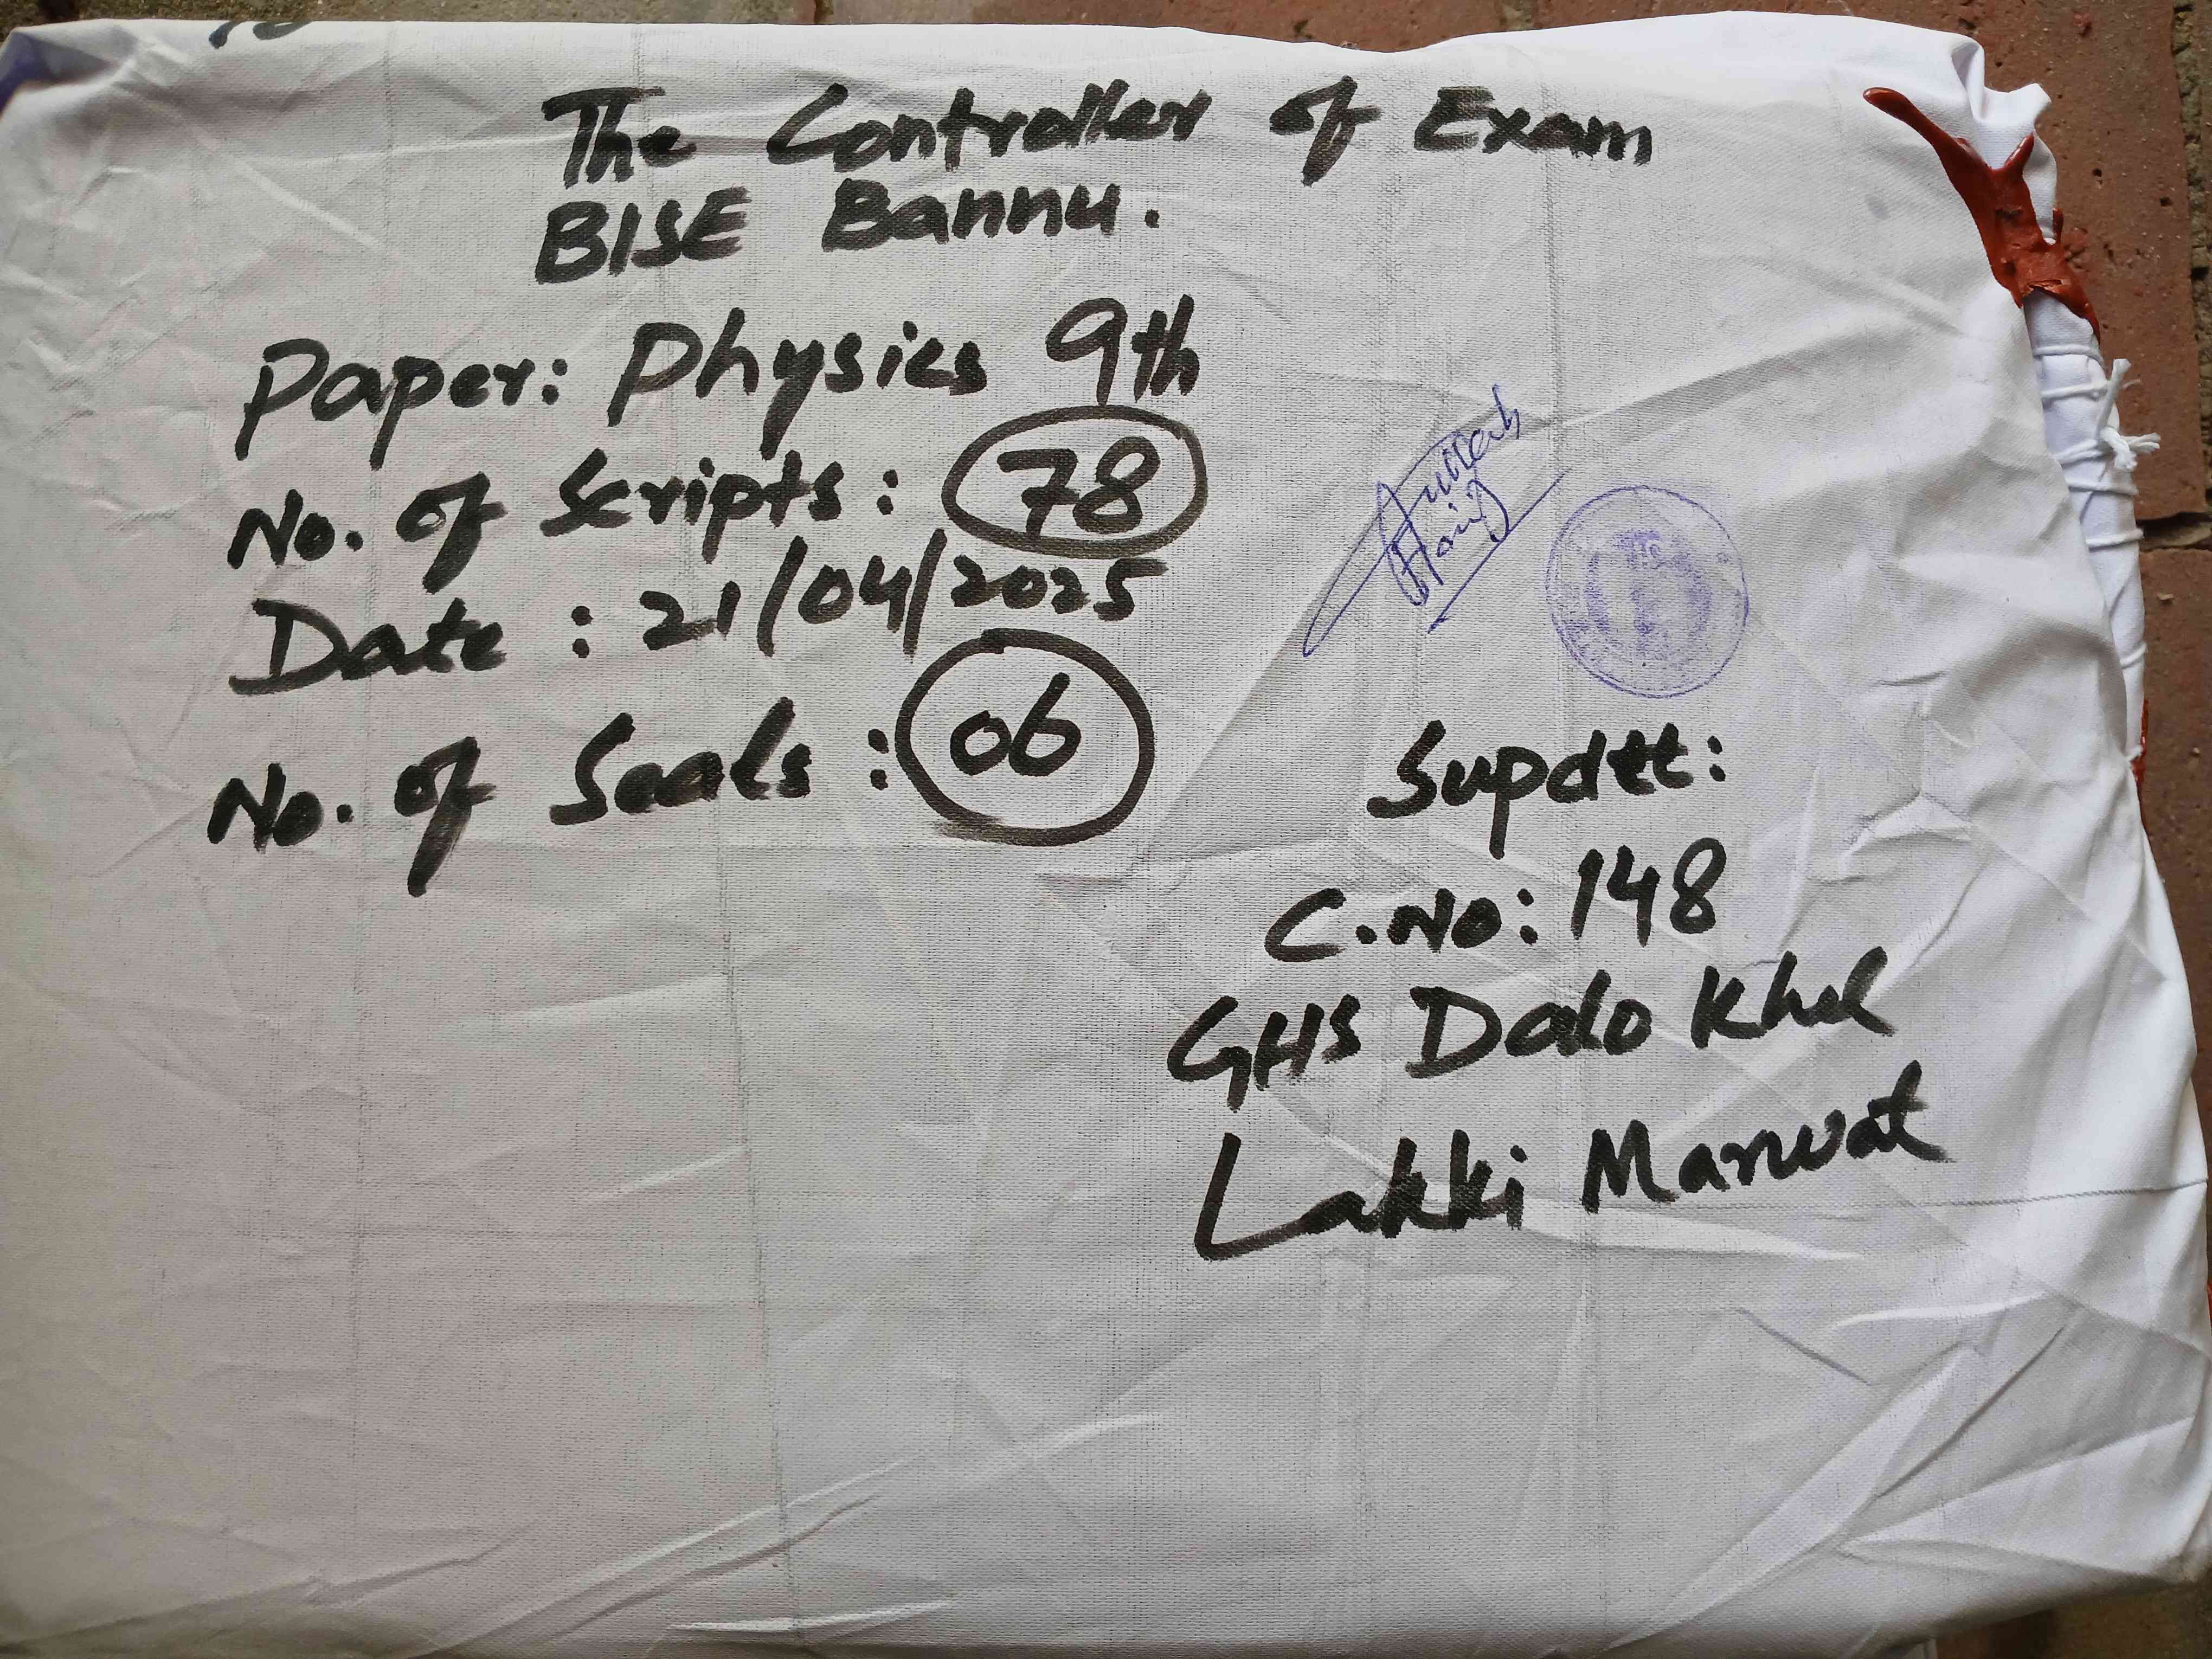 To
The Controller of Exam
BISE Bannu.
Paper: Physics 9th
No. of Scripts: 78
Date: 21/04/2025
No. of Seals: 06
Supdtt:
C.No: 148
GHS Dalo Khel
Lakki Marwat